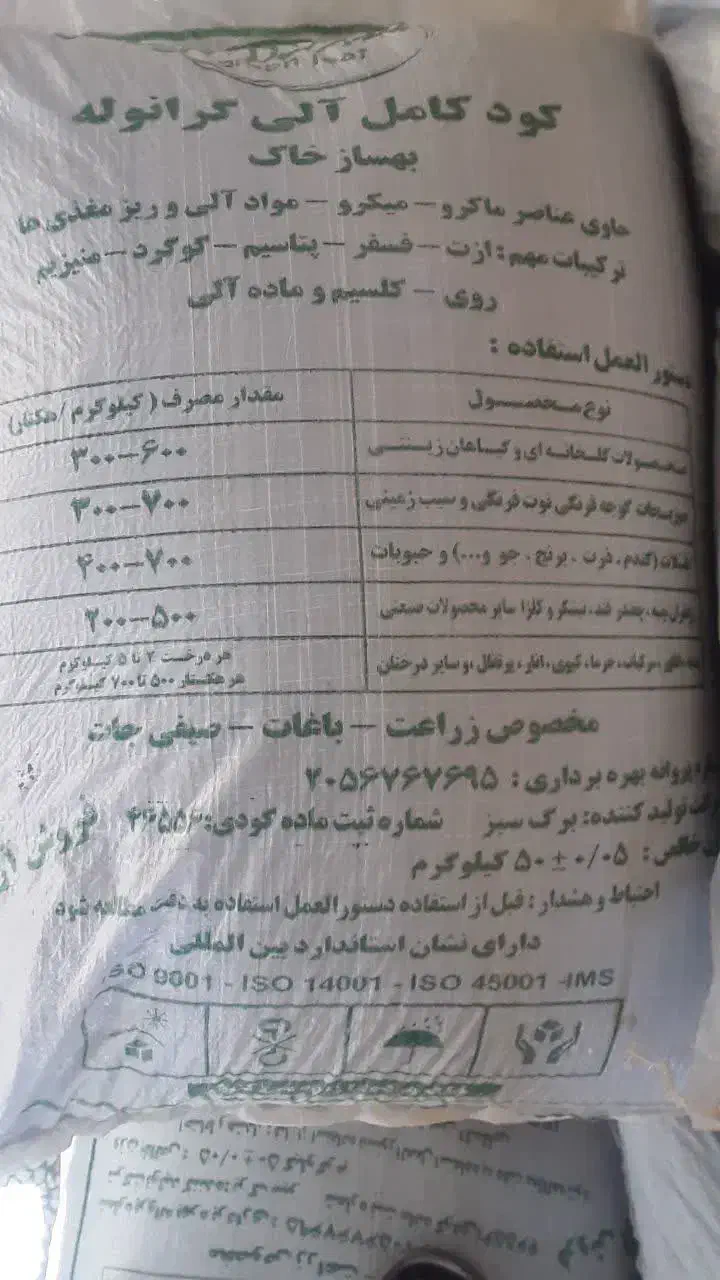 کود کامل آلی گرانوله
بهساز خاک
حاوی عناصر ماکرو – میکرو – مواد آلی و ریز مغذی ها
ترکیبات مهم : ازت – فسفر – پتاسیم – گوگرد – منیزیم
روی – کلسیم و ماده آلی
دستور العمل استفاده :
نوع محصول مقدار مصرف ( کیلوگرم / هکتار)
محصولات گلخانه ای و گیاهان زینتی ۳۰۰–۶۰۰
گوجه فرنگی توت فرنگی و سیب زمینی ۳۰۰–۷۰۰
غلات (گندم ، ذرت ، برنج ، جو و...) و حبوبات ۴۰۰–۷۰۰
چغندر قند، نیشکر و کلزا سایر محصولات صنعتی ۲۰۰–۵۰۰
مرکبات، خرما، کیوی، انار، پرتقال ،و سایر درختان هر درخت ۲ تا ۵ کیلوگرم
هر هکتار ۵۰۰ تا ۷۰۰ کیلوگرم
مخصوص زراعت – باغات – صیفی جات
پروانه بهره برداری : ۲۰۵۶۷۶۷۶۹۵
تولید کننده: برگ سبز شماره ثبت ماده کودی: فروش
خالص : ۰/۰۵ ± ۵۰ کیلوگرم
احتیاط و هشدار : قبل از استفاده دستور العمل استفاده به دقت مطالعه شود
دارای نشان استاندارد بین المللی
ISO 9001 - ISO 14001 - ISO 45001 -IMS